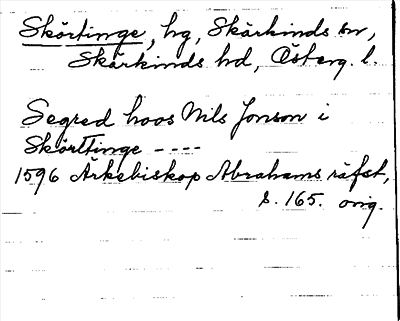 Skörtinge, hg, Skärkinds sn,
Skärkinds hd, Österg. l.
Segred hoos Nils Jonson i
Skörttinge ----
1596 Ärkebiskop Abrahams räfst,
s. 165. orig.